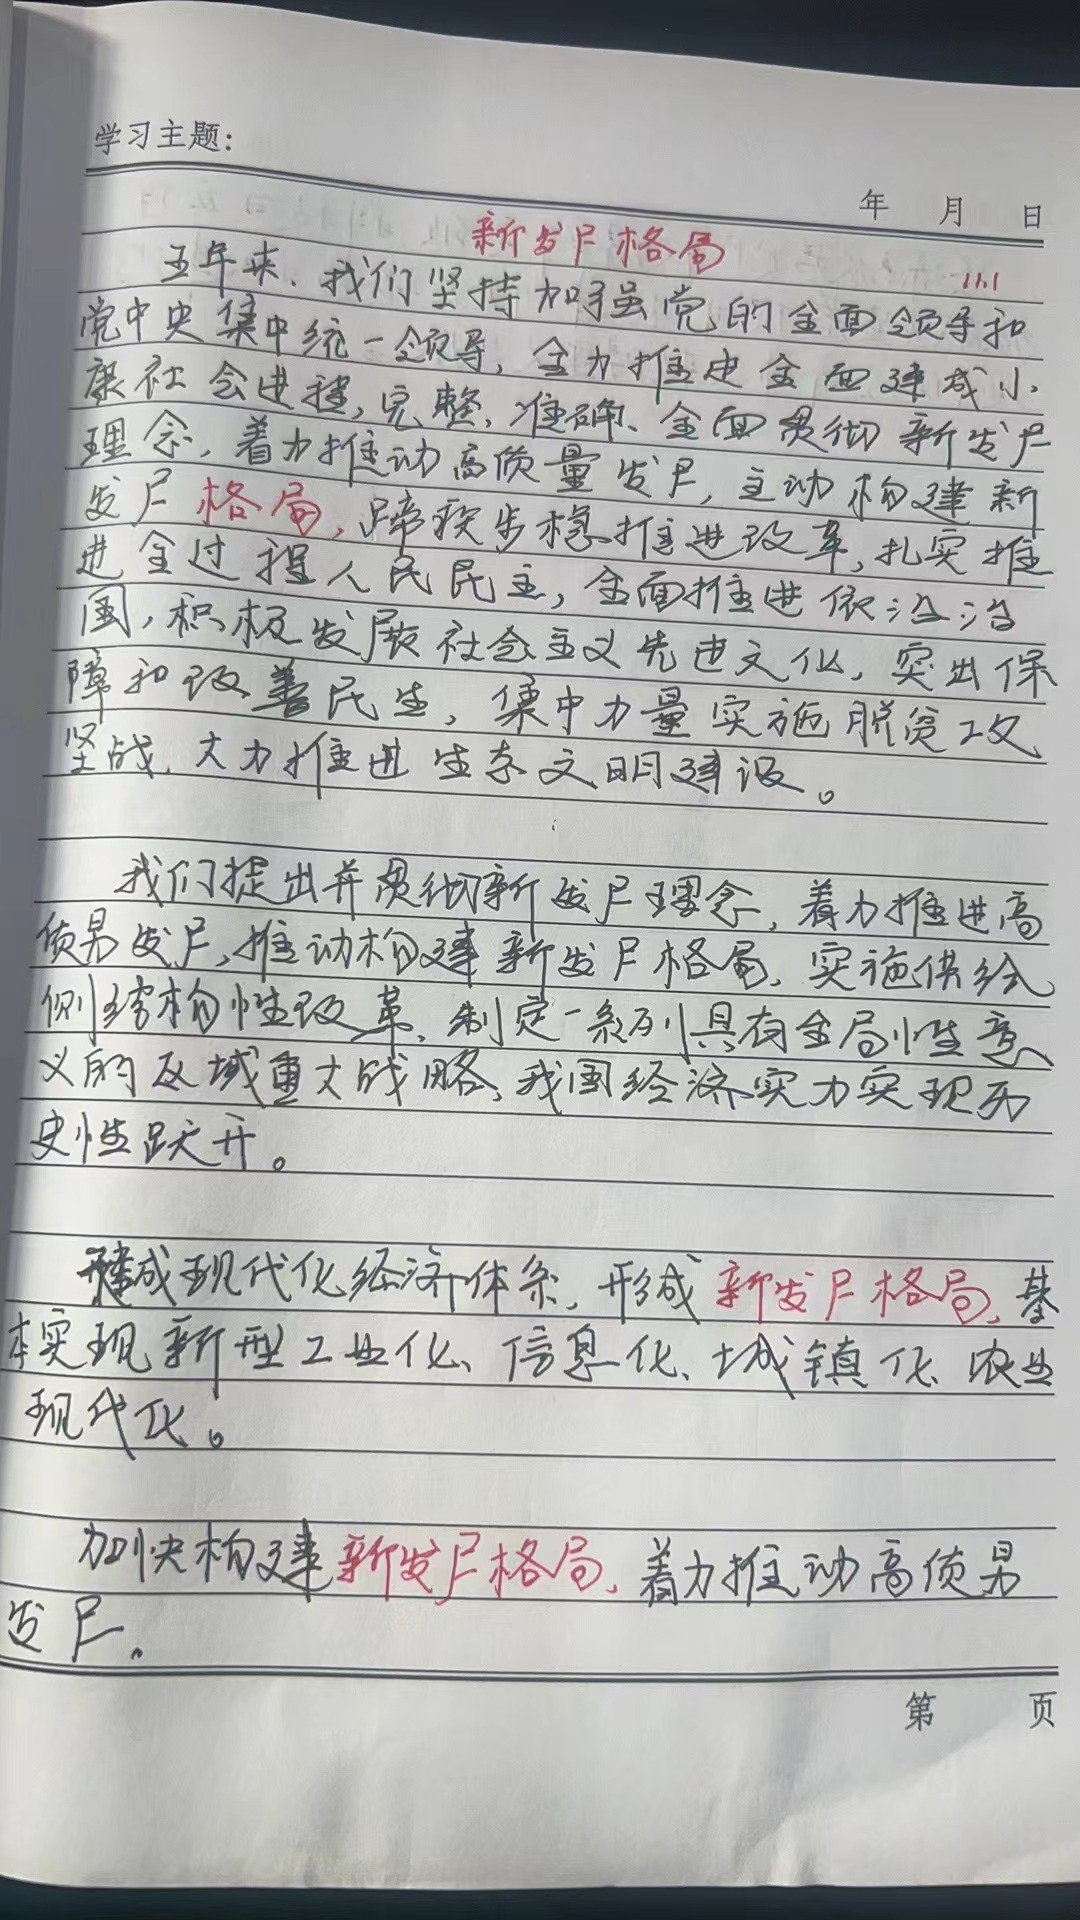 学习主题:
年 月 日
新发尸格局
11.1
五年来、我们坚持加强党的全面领导和
党中央集中统一领导,全力推进全面建成小
康社会进程,完整、准确、全面贯彻新发尸
理念,着力推动高质量发尸,主动构建新
发尸格局,蹄疾步稳推进改革,扎实推
进全过程人民民主,全面推进依法治
国,积极发展社会主义先进文化,突出保
障和改善民生,集中力量实施脱贫攻
坚战,大力推进生态文明建设。
我们提出并贯彻新发尸理念,着力推进高
质另发尸,推动构建新发尸格局,实施供给
侧结构性改革,制定一系列具有全局性意
义的区域重大战略,我国经济实力实现历
史性跃升。
建成现代化经济体系,形成新发尸格局,基
本实现新型工业化、信息化、城镇化、农业
现代化。
加快构建新发尸格局,着力推动高质另
发尸.
第 页